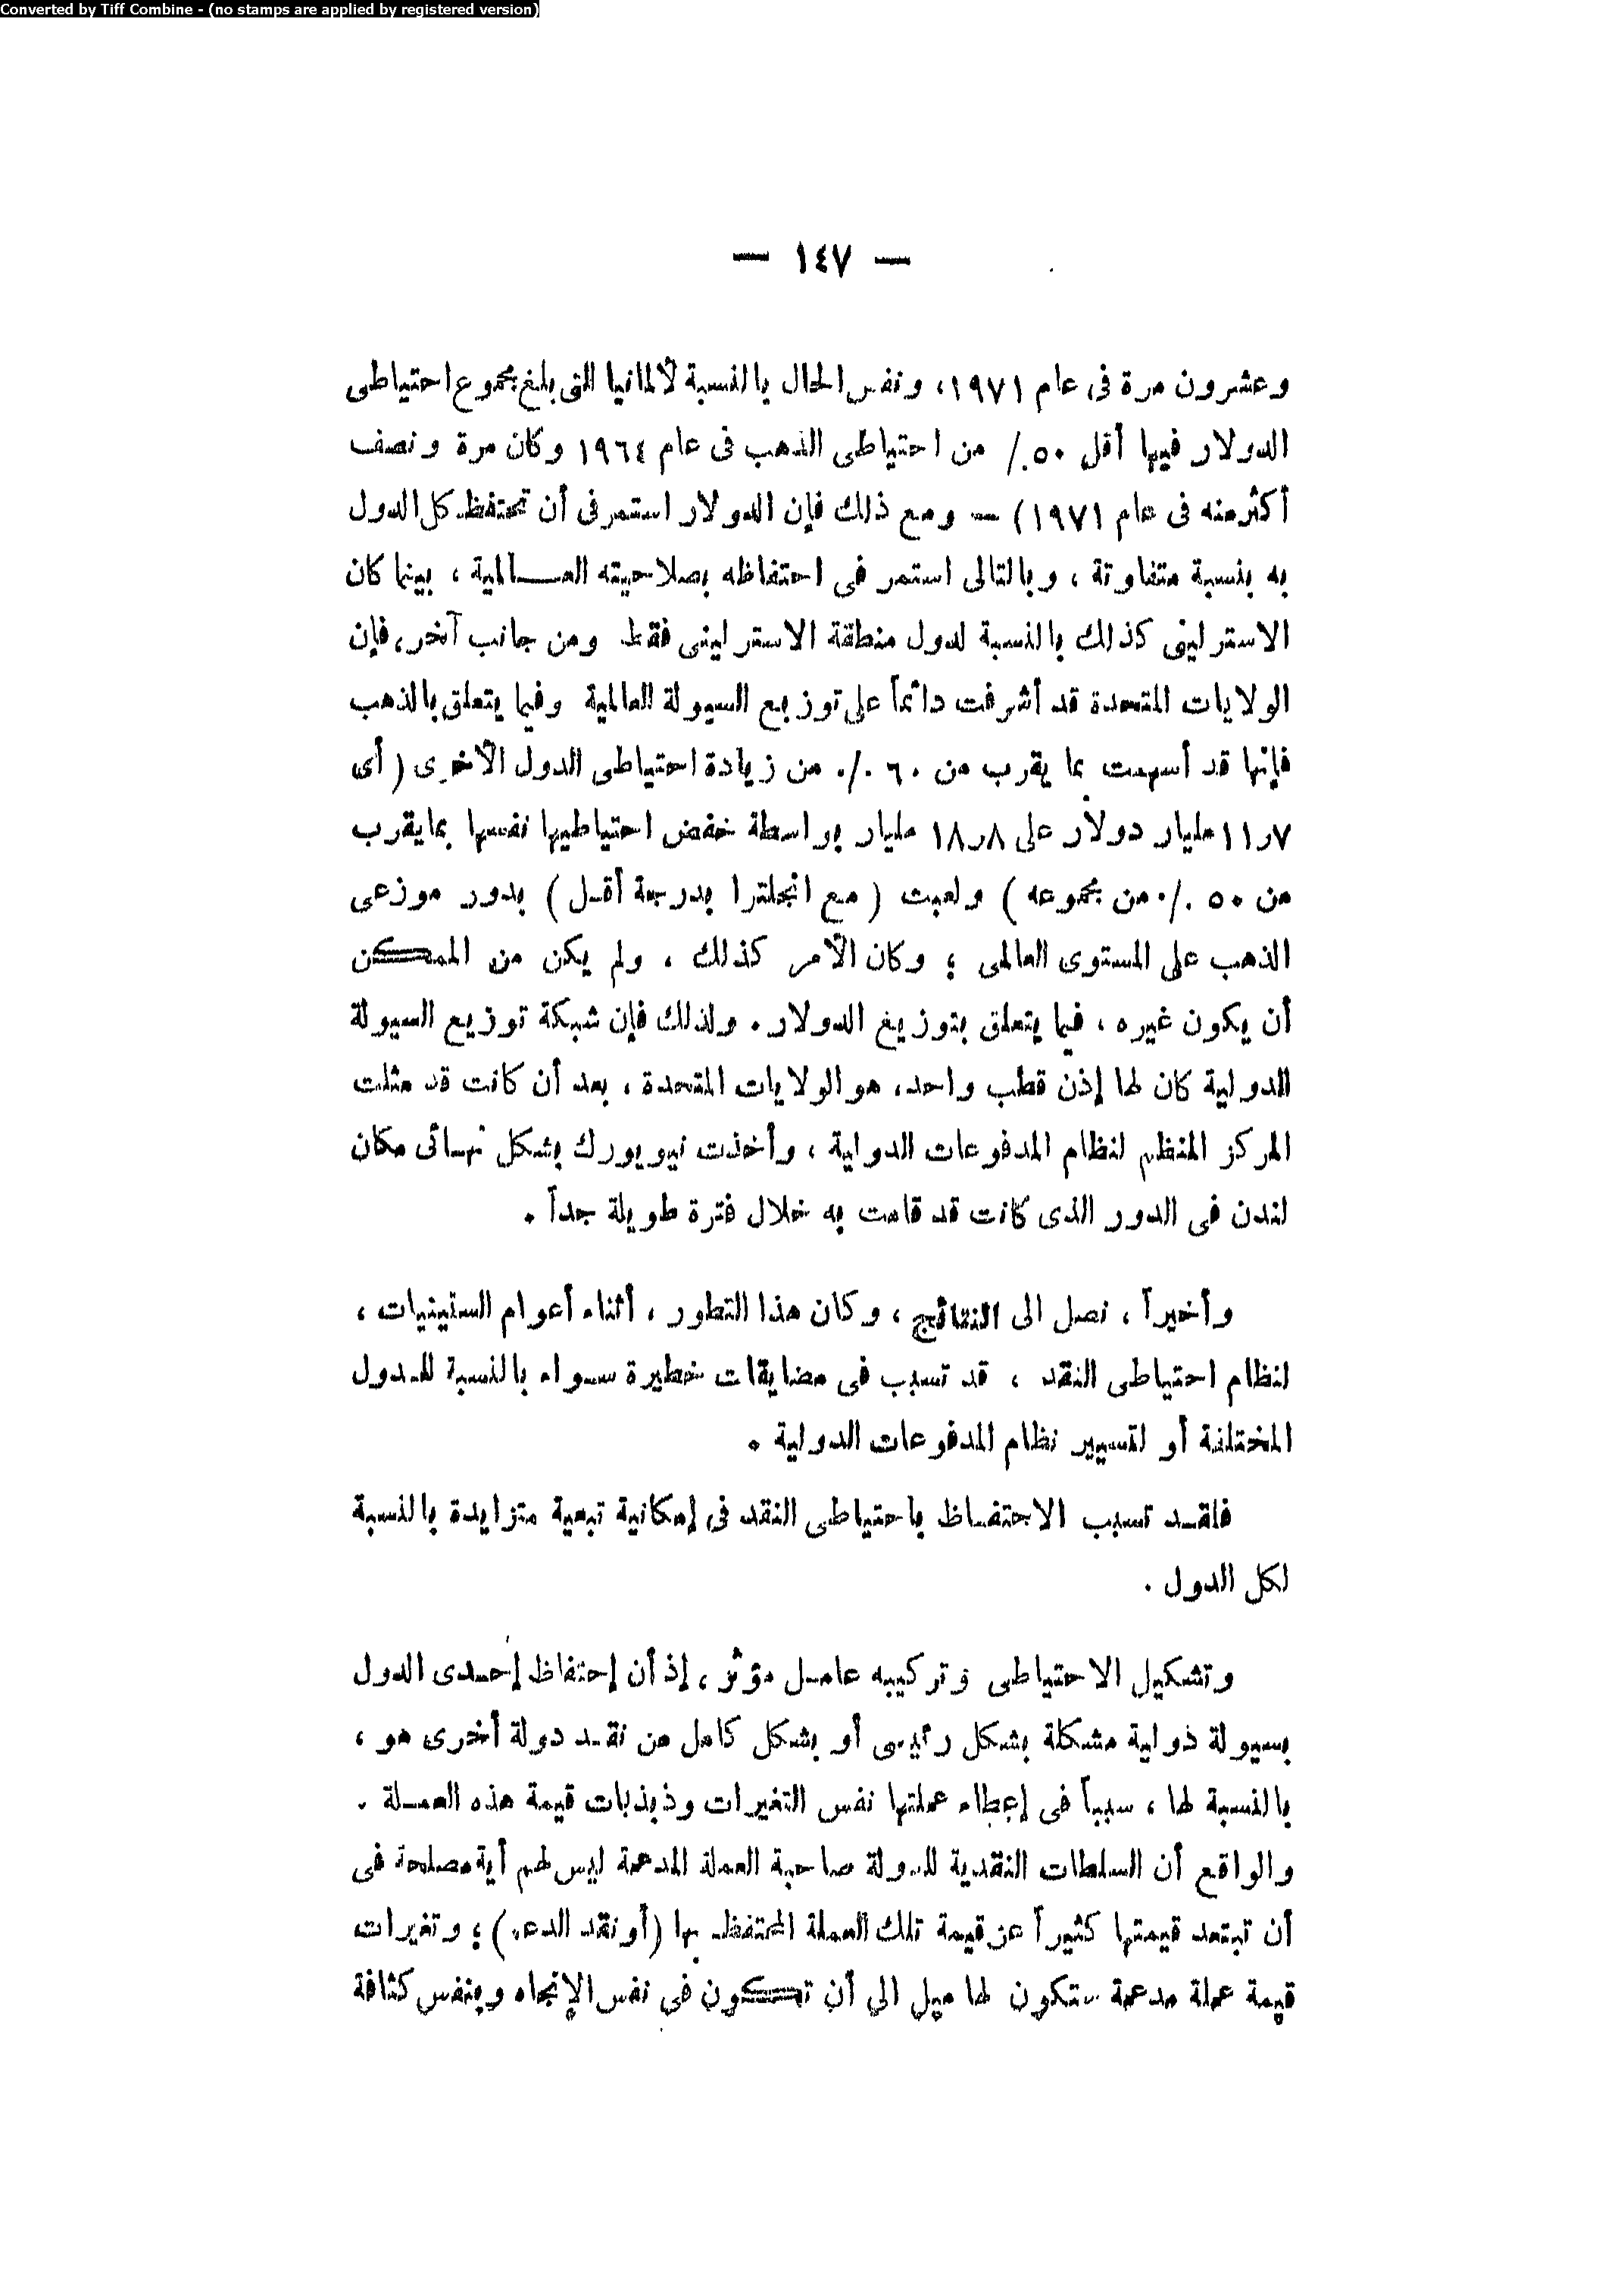 Converted by Tiff Combine - (no stamps are applied by registered version)
— ١٤٧ —
وعشرون مرة فى عام ١٩٧١، ونفس الحال بالنسبة لألمانيا التى بلغ مجموع احتياطى
الدولار فيها أقل ٥٠٪ من احتياطى الذهب فى عام ١٩٦٤ وكان مرة ونصف
أكثر منه فى عام ١٩٧١) — ومع ذلك فإن الدولار استمر فى أن تحتفظ كل الدول
به بنسبة متفاوتة ، وبالتالى استمر فى احتفاظه بصلاحيته العـــالمية ، بينما كان
الاسترلينى كذلك بالنسبة لدول منطقة الاسترلينى فقط ومن جانب آخر، فإن
الولايات المتحدة قد أشرفت دائماً على توزيع السيولة العالمية وفيما يتعلق بالذهب
فإنها قد أسهمت بما يقرب من ٦٠٪ من زيادة احتياطى الدول الأخرى ( أى
٧ر١١ مليار دولار على ٨ر١٨ مليار بواسطة خفض احتياطيها نفسها بما يقرب
من ٥٠٪ من مجموعه ) ولعبت ( مع انجلترا بدرجة أقـل ) بدور موزعى
الذهب على المستوى العالمى ؛ وكان الأمر كذلك ، ولم يكن من الممـكن
أن يكون غيره ، فيما يتعلق بتوزيع الدولار . ولذلك فإن شبكة توزيع السيولة
الدولية كان لها إذن قطب واحد، هو الولايات المتحدة ، بعد أن كانت قد مثلت
المركز المنظم لنظام المدفوعات الدولية ، وأخذت نيويورك بشكل نهـائى مكان
لندن فى الدور الذى كانت قد قامت به خلال فترة طويلة جداً .
وأخيراً ، نصل الى النتائج ، وكان هذا التطور ، أثناء أعوام الستينيات ،
لنظام احتياطى النقد ، قد تسبب فى مضايقات خطيرة سـواء بالنسبة للـدول
المختلفة أو لتسيير نظام المدفوعات الدولية .
فلقـد تسبب الاحتفـاظ باحتياطى النقد فى إمكانية تبعية متزايدة بالنسبة
لكل الدول .
وتشكيل الاحتياطى وتركيبه عامـل مؤثر ، إذ أن إحتفاظ إحـدى الدول
بسيولة دولية مشكلة بشكل رئيسى أو بشكل كامل من نقـد دولة أخرى هو ،
بالنسبة لها ، سبباً فى إعطاء عملتها نفس التغيرات وذبذبات قيمة هذه العمـلة .
والواقع أن السلطات النقدية للدولة صاحبة العملة المدعمة ليس لهم أية مصلحة فى
أن تبتعد قيمتها كثيراً عن قيمة تلك العملة المحتفظ بها (أو نقد الدعم) ؛ وتغيرات
قيمة عملة مدعمة ستكون لها ميل الى أن تـكون فى نفس الإتجاه وبنفس كثافة